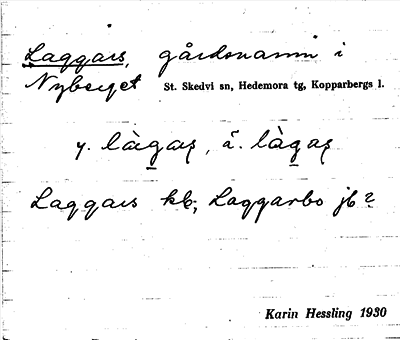 Laggars, gårdsnamn i
Nyberget St. Skedvi sn, Hedemora tg, Kopparbergs l.
y. làgaș, ä. làgaș
Laggars kb; Laggarbo jb?
Karin Hessling 1930